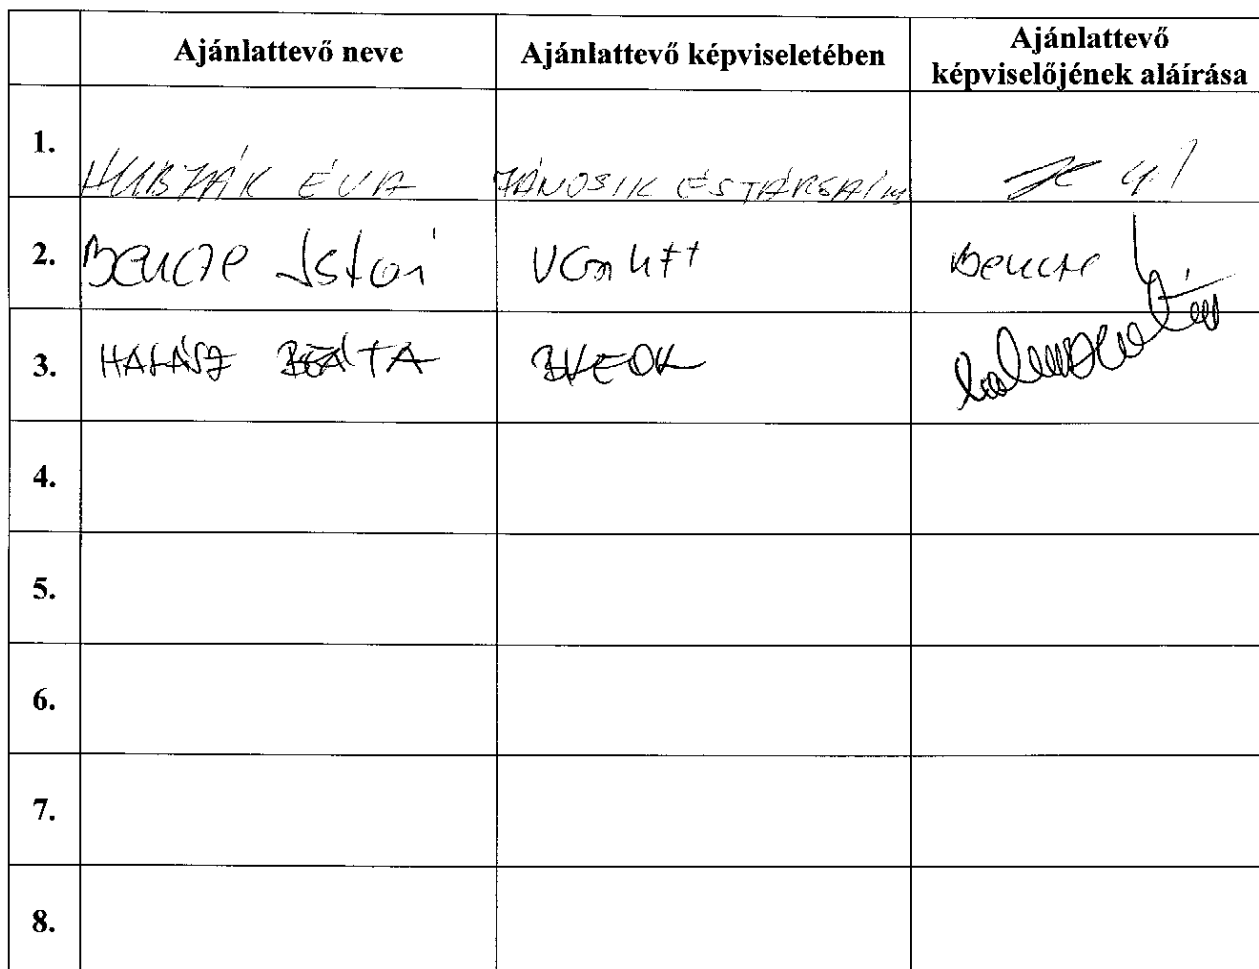 Ajánlattevő neve
Ajánlattevő képviseletében
Ajánlattevő
képviselőjének aláírása
1.
ÉVA JÁNOSIK ÉS TÁRSAI
2. Bencze VGm Bencze
3. HALÁSZ BEÁTA
4.
5.
6.
7.
8.